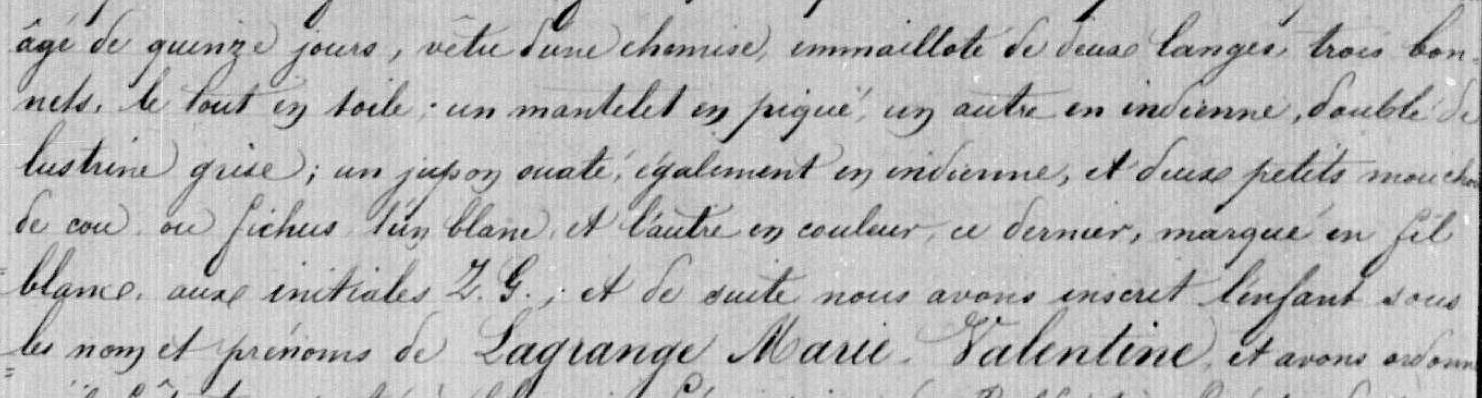 âgé de quinze jours, vêtu d'une chemise, emmailloté de deux langes, trois bon=
nets, le tout en toile ; un mantelet en piqué, un autre en indienne, doublé de
lustrine grise ; un jupon ouaté, également en indienne, et deux petits mouchoi
de cou ou fichus l'un blanc, et l'autre en couleur, ce dernier, marqué en fil
blanc, aux initiales Z. G. ; et de suite nous avons inscrit l'enfant sous
les nom et prénoms de Lagrange Marie Valentine, et avons ordonn